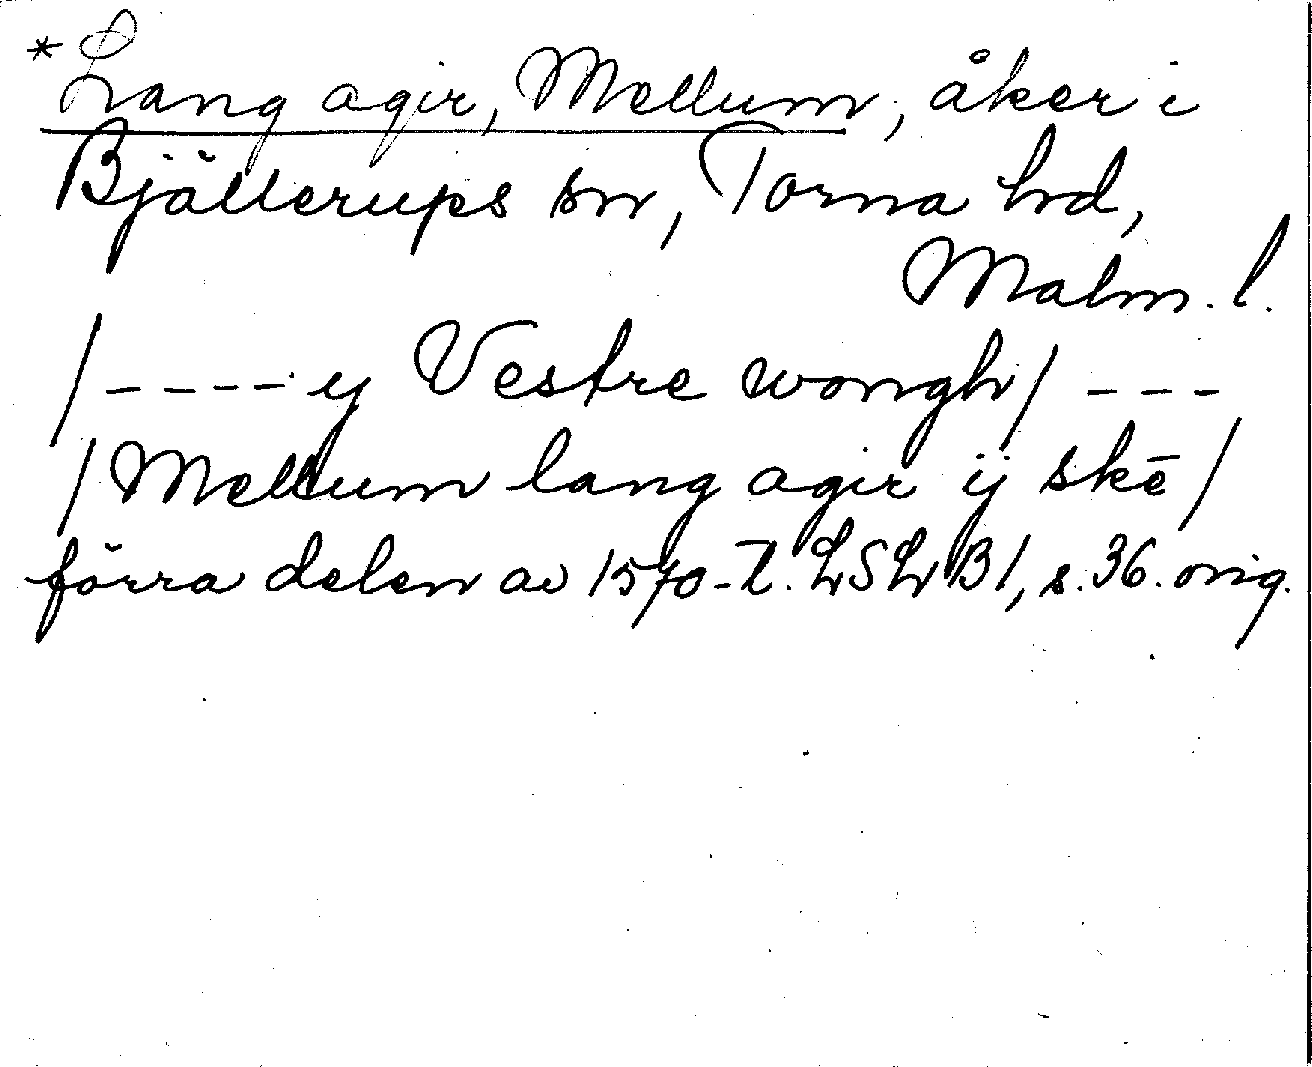 *Lang agir, Mellum, åker i
Bjällerups sn, Torna hd,
Malm. l.
/---- ij Vestre wongh/ ---
/Mellum lang agir ij skē/
förra delen av 1570-t. LSLB1, s. 36. orig.